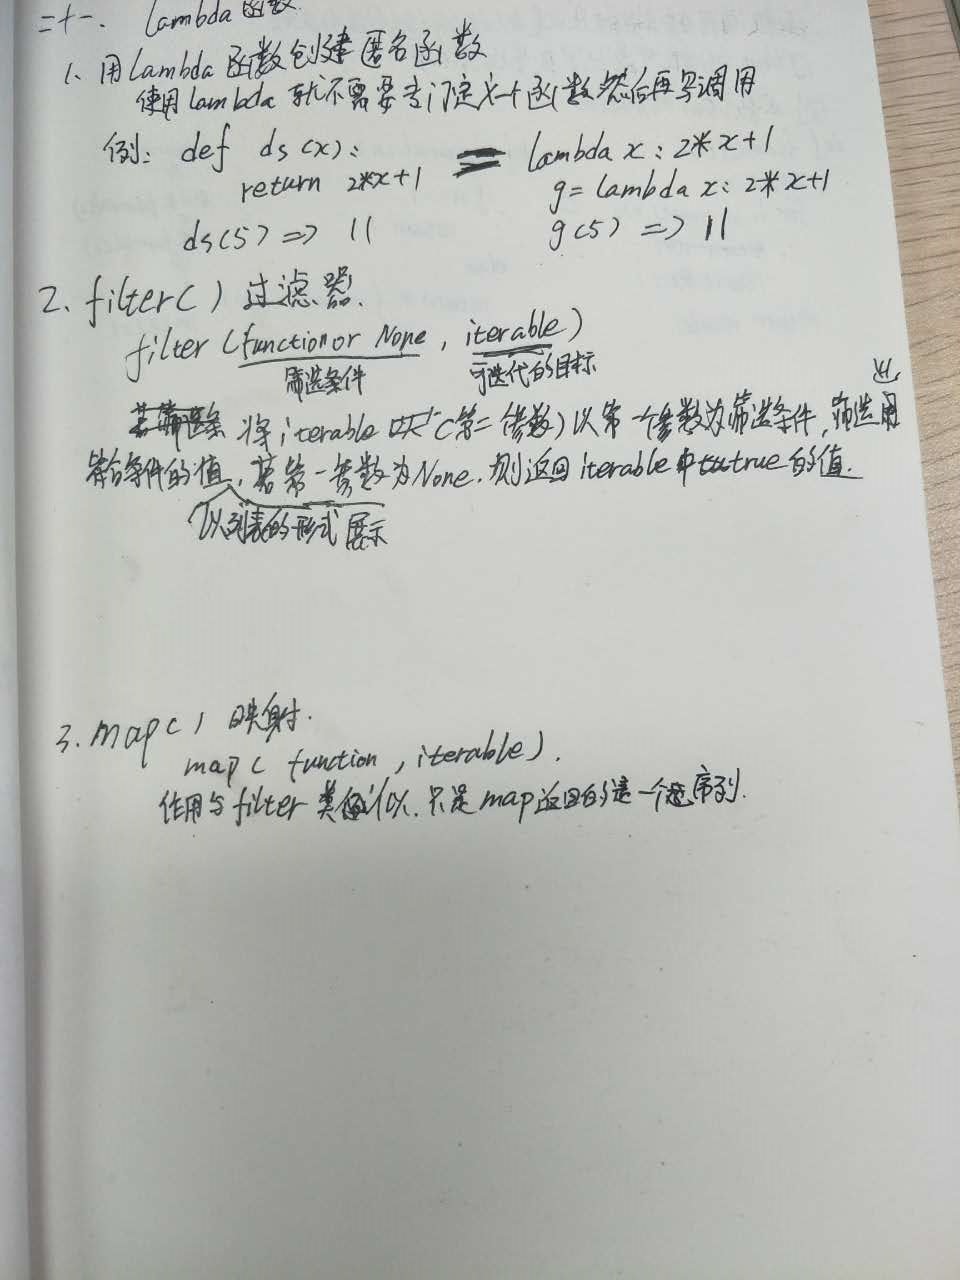 二十一. Lambda函数.
1. 用Lambda函数创建匿名函数
使用lambda 就不需要专门定义一个函数然后再写调用
例: def ds(x): = lambda x: 2*x+1
return 2*x+1 g = lambda x: 2*x+1
ds(5) => 11 g(5) => 11
2. filter() 过滤器.
filter (function or None, iterable)
筛选条件 可迭代的目标
将iterable (第二参数) 以第一个参数为筛选条件, 筛选出
符合条件的值, 若第一参数为None. 则返回iterable中true的值.
以列表的形式展示
3. map() 映射.
map( function, iterable).
作用与filter类似. 只是map返回的是一个序列.